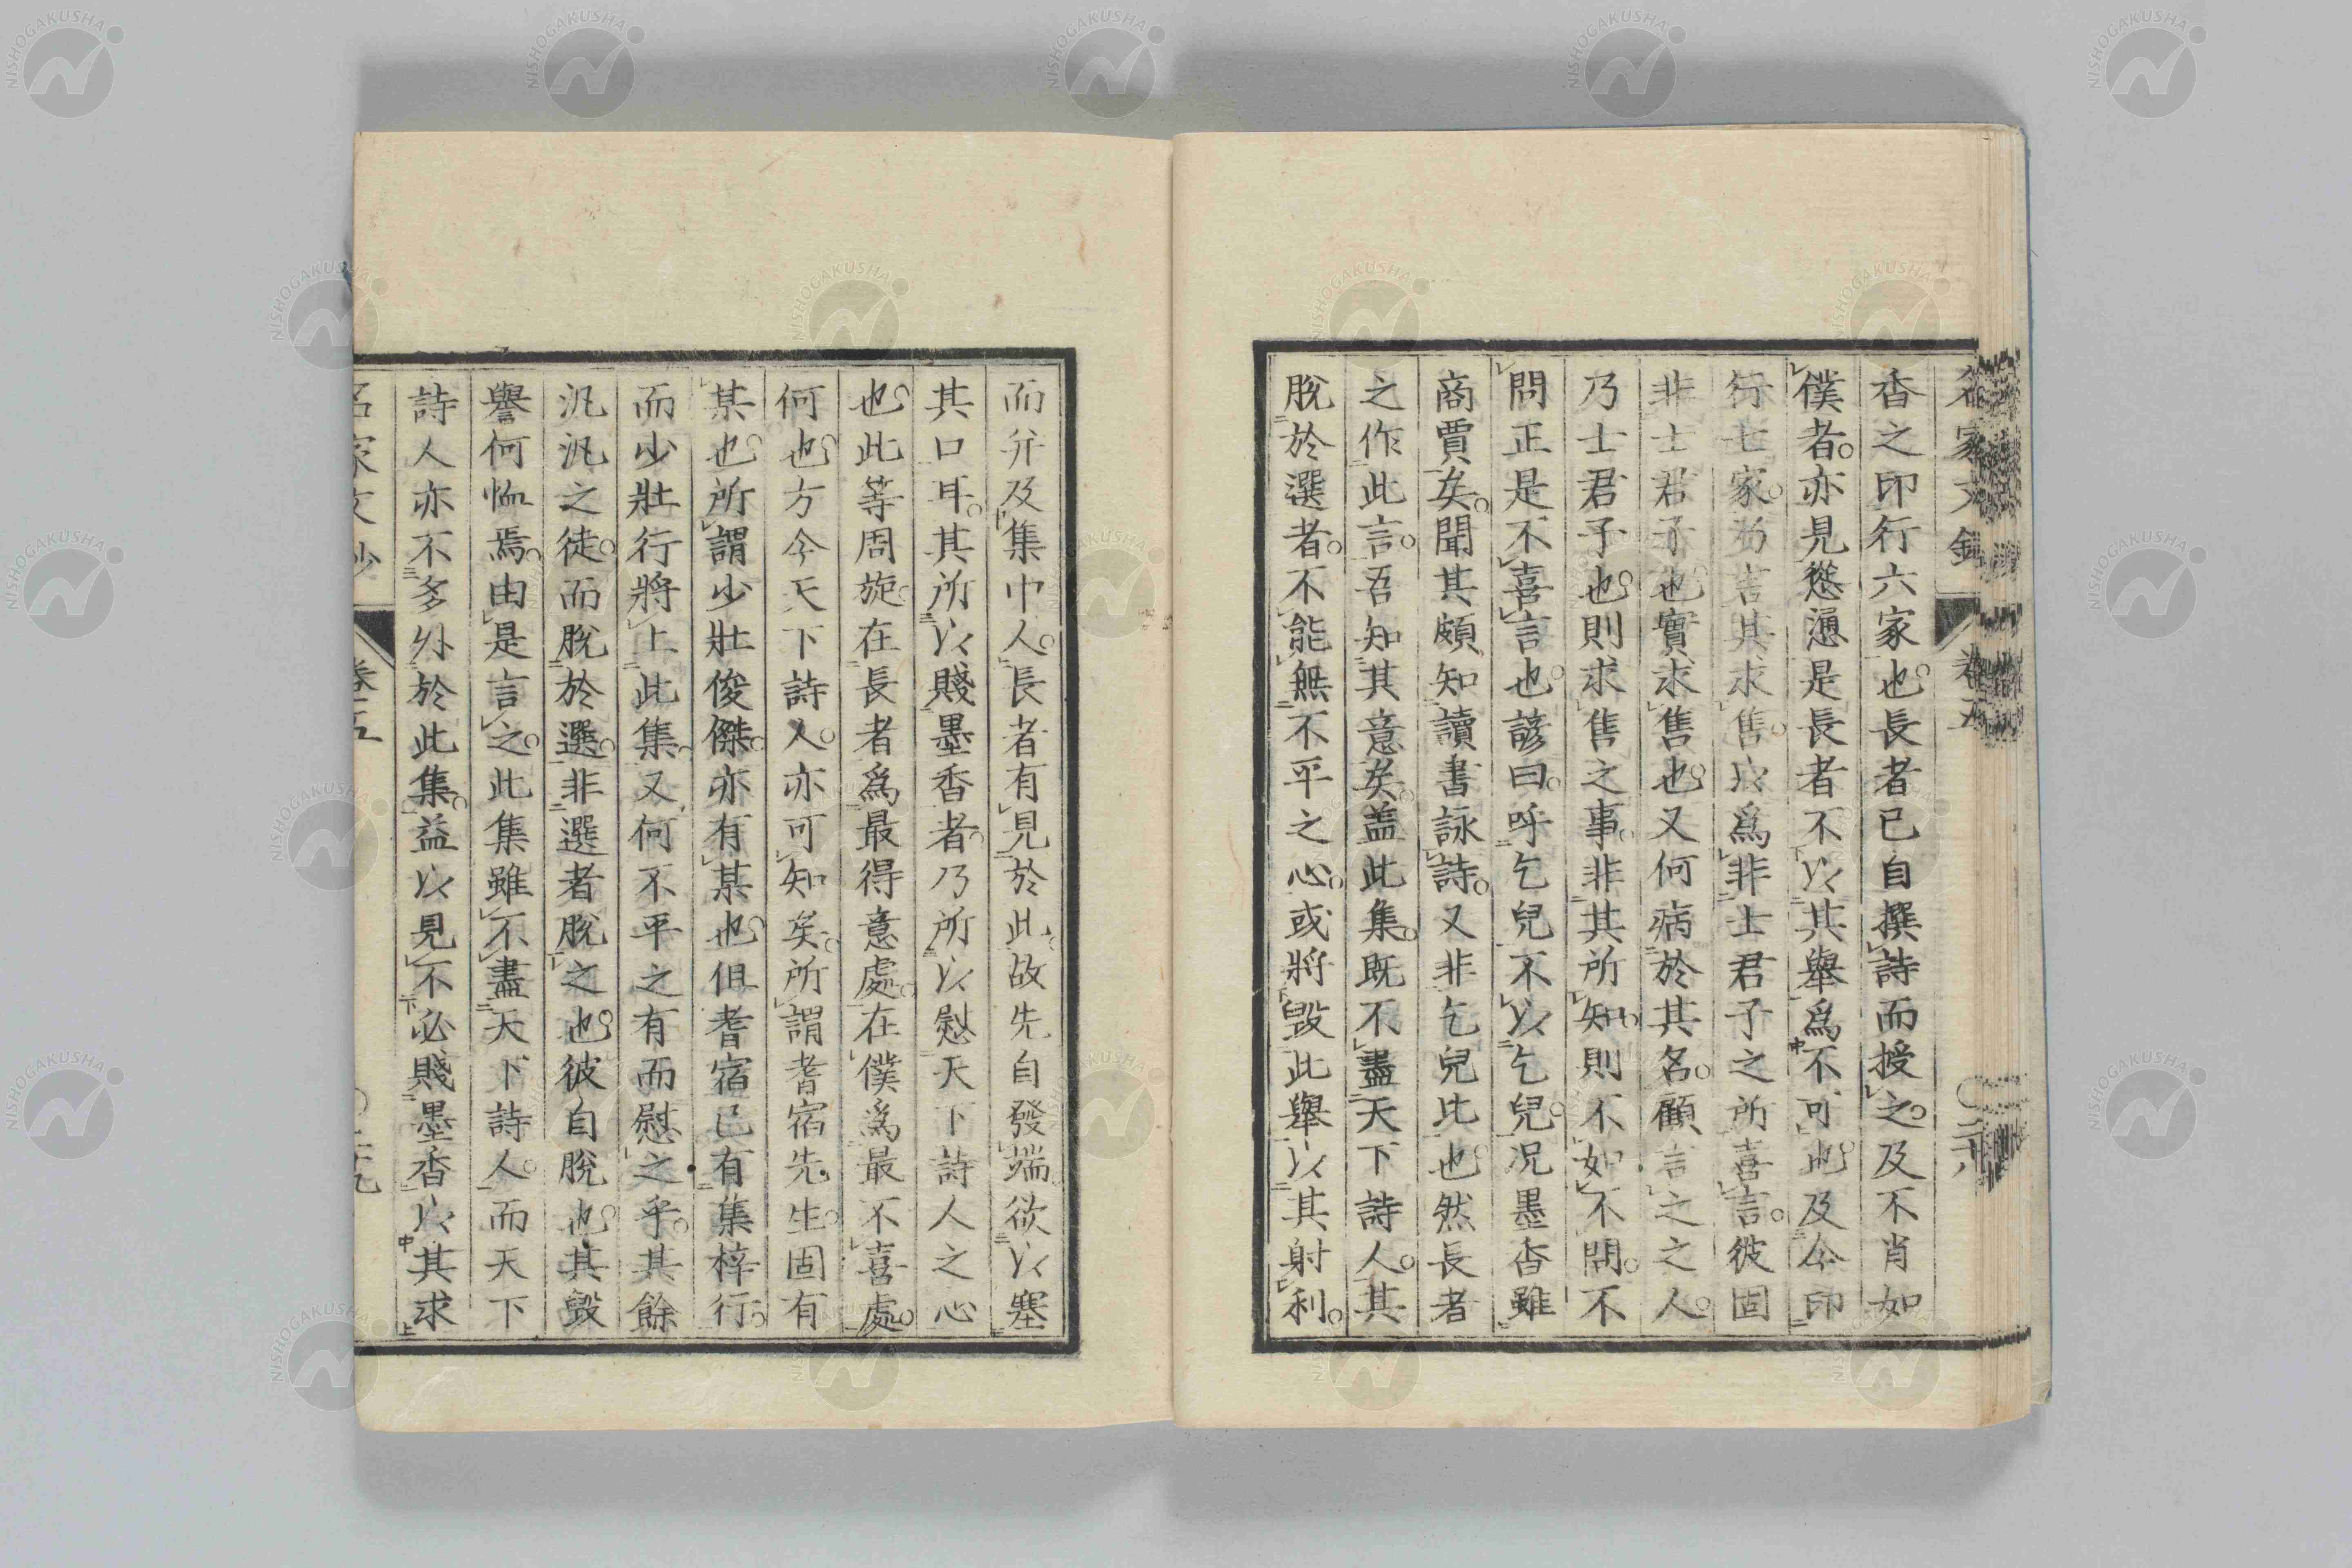 香之印行六家也長者已自撰詩而授之及不肖如
僕者亦見慫慂是長者不以其舉爲不可也及今印
行七家乃言其求售以爲非士君子之所喜言彼固
非士君子也實求售也又何病於其名顧言之之人
乃士君子也則求售之事非其所知則不如不問不
問正是不喜言也諺曰呼乞兒不以乞兒况墨香雖
商賈矣聞其頗知讀書詠詩又非乞兒比也然長者
之作此言吾知其意矣盖此集既不盡天下詩人其
脫於選者不能無不平之心或將毀此舉以其射利
而并及集中人長者有見於此故先自發端欲以塞
其口耳其所以賤墨香者乃所以慰天下詩人之心
也此等周旋在長者爲最得意處在僕爲最不喜處
何也方今天下詩人亦可知矣所謂耆宿先生固有
某也所謂少壯俊傑亦有某也但耆宿已有集梓行
而少壯行將上此集又何不平之有而慰之乎其餘
汎汎之徒而脫於選非選者脫之也彼自脫也其毀
譽何恤焉由是言之此集雖不盡天下詩人而天下
詩人亦不多外於此集益以見不必賤墨香以其求
名家文鈔 卷五 二十九
NISHOGAKUSHA